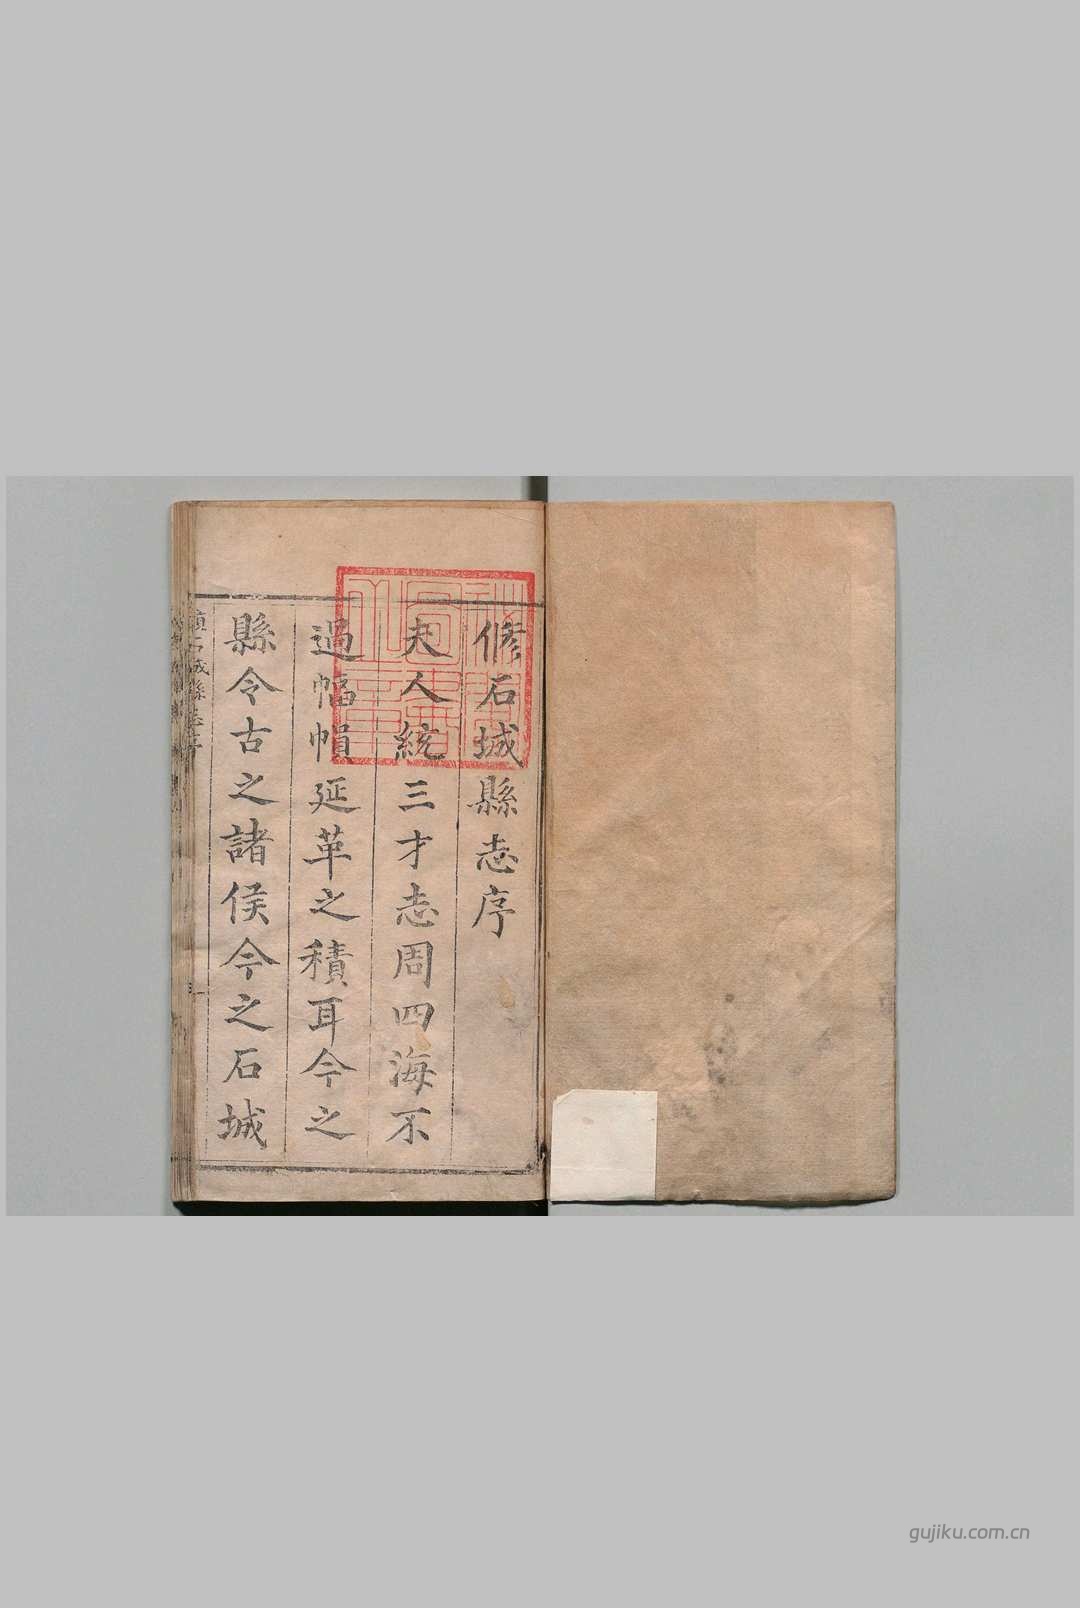 修石城縣志序
夫人統三才志周四海不
過幅幀延革之積耳今之
縣令古之諸侯今之石城
gujiku.com.cn